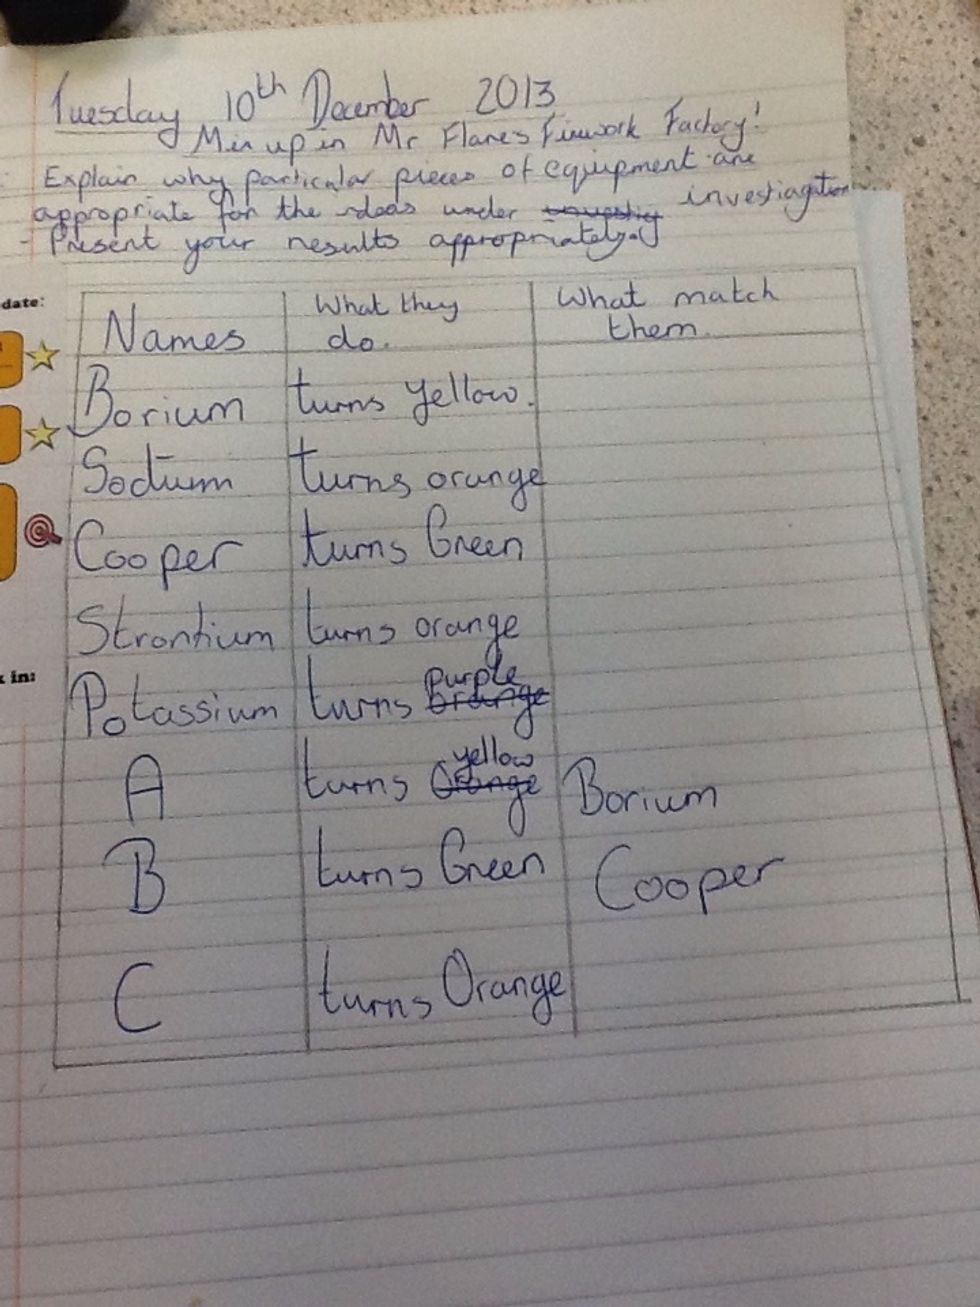 Tuesday 10th December 2013
Mix up in Mr Flame's Firework Factory!
Explain why particular pieces of equipment are
appropriate for the ideas under investiagation.
- Present your results appropriately.
date:
Names What they do. What match them.
Borium turns yellow.
Sodium turns orange
Cooper turns Green
Strontium turns orange
in:
Potassium turns purple orange
A turns yellow Orange Borium
B turns Green Cooper
C turns Orange